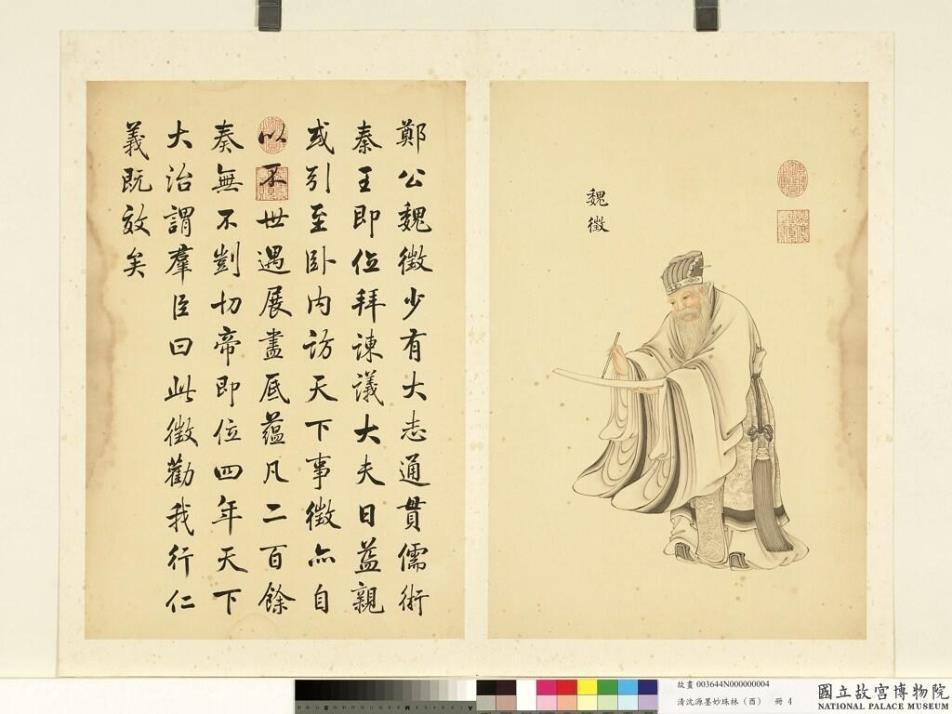 魏徵
鄭公魏徵少有大志通貫儒術
秦王即位拜諫議大夫日益親
或引至卧内訪天下事徵亦自
以不世遇展盡底蘊凡二百餘
奏無不剴切帝即位四年天下
大治謂羣臣曰此徵勸我行仁
義既效矣
故畫 003644N000000004
清沈源墨妙珠林（酉） 冊 4
國立故宮博物院
NATIONAL PALACE MUSEUM